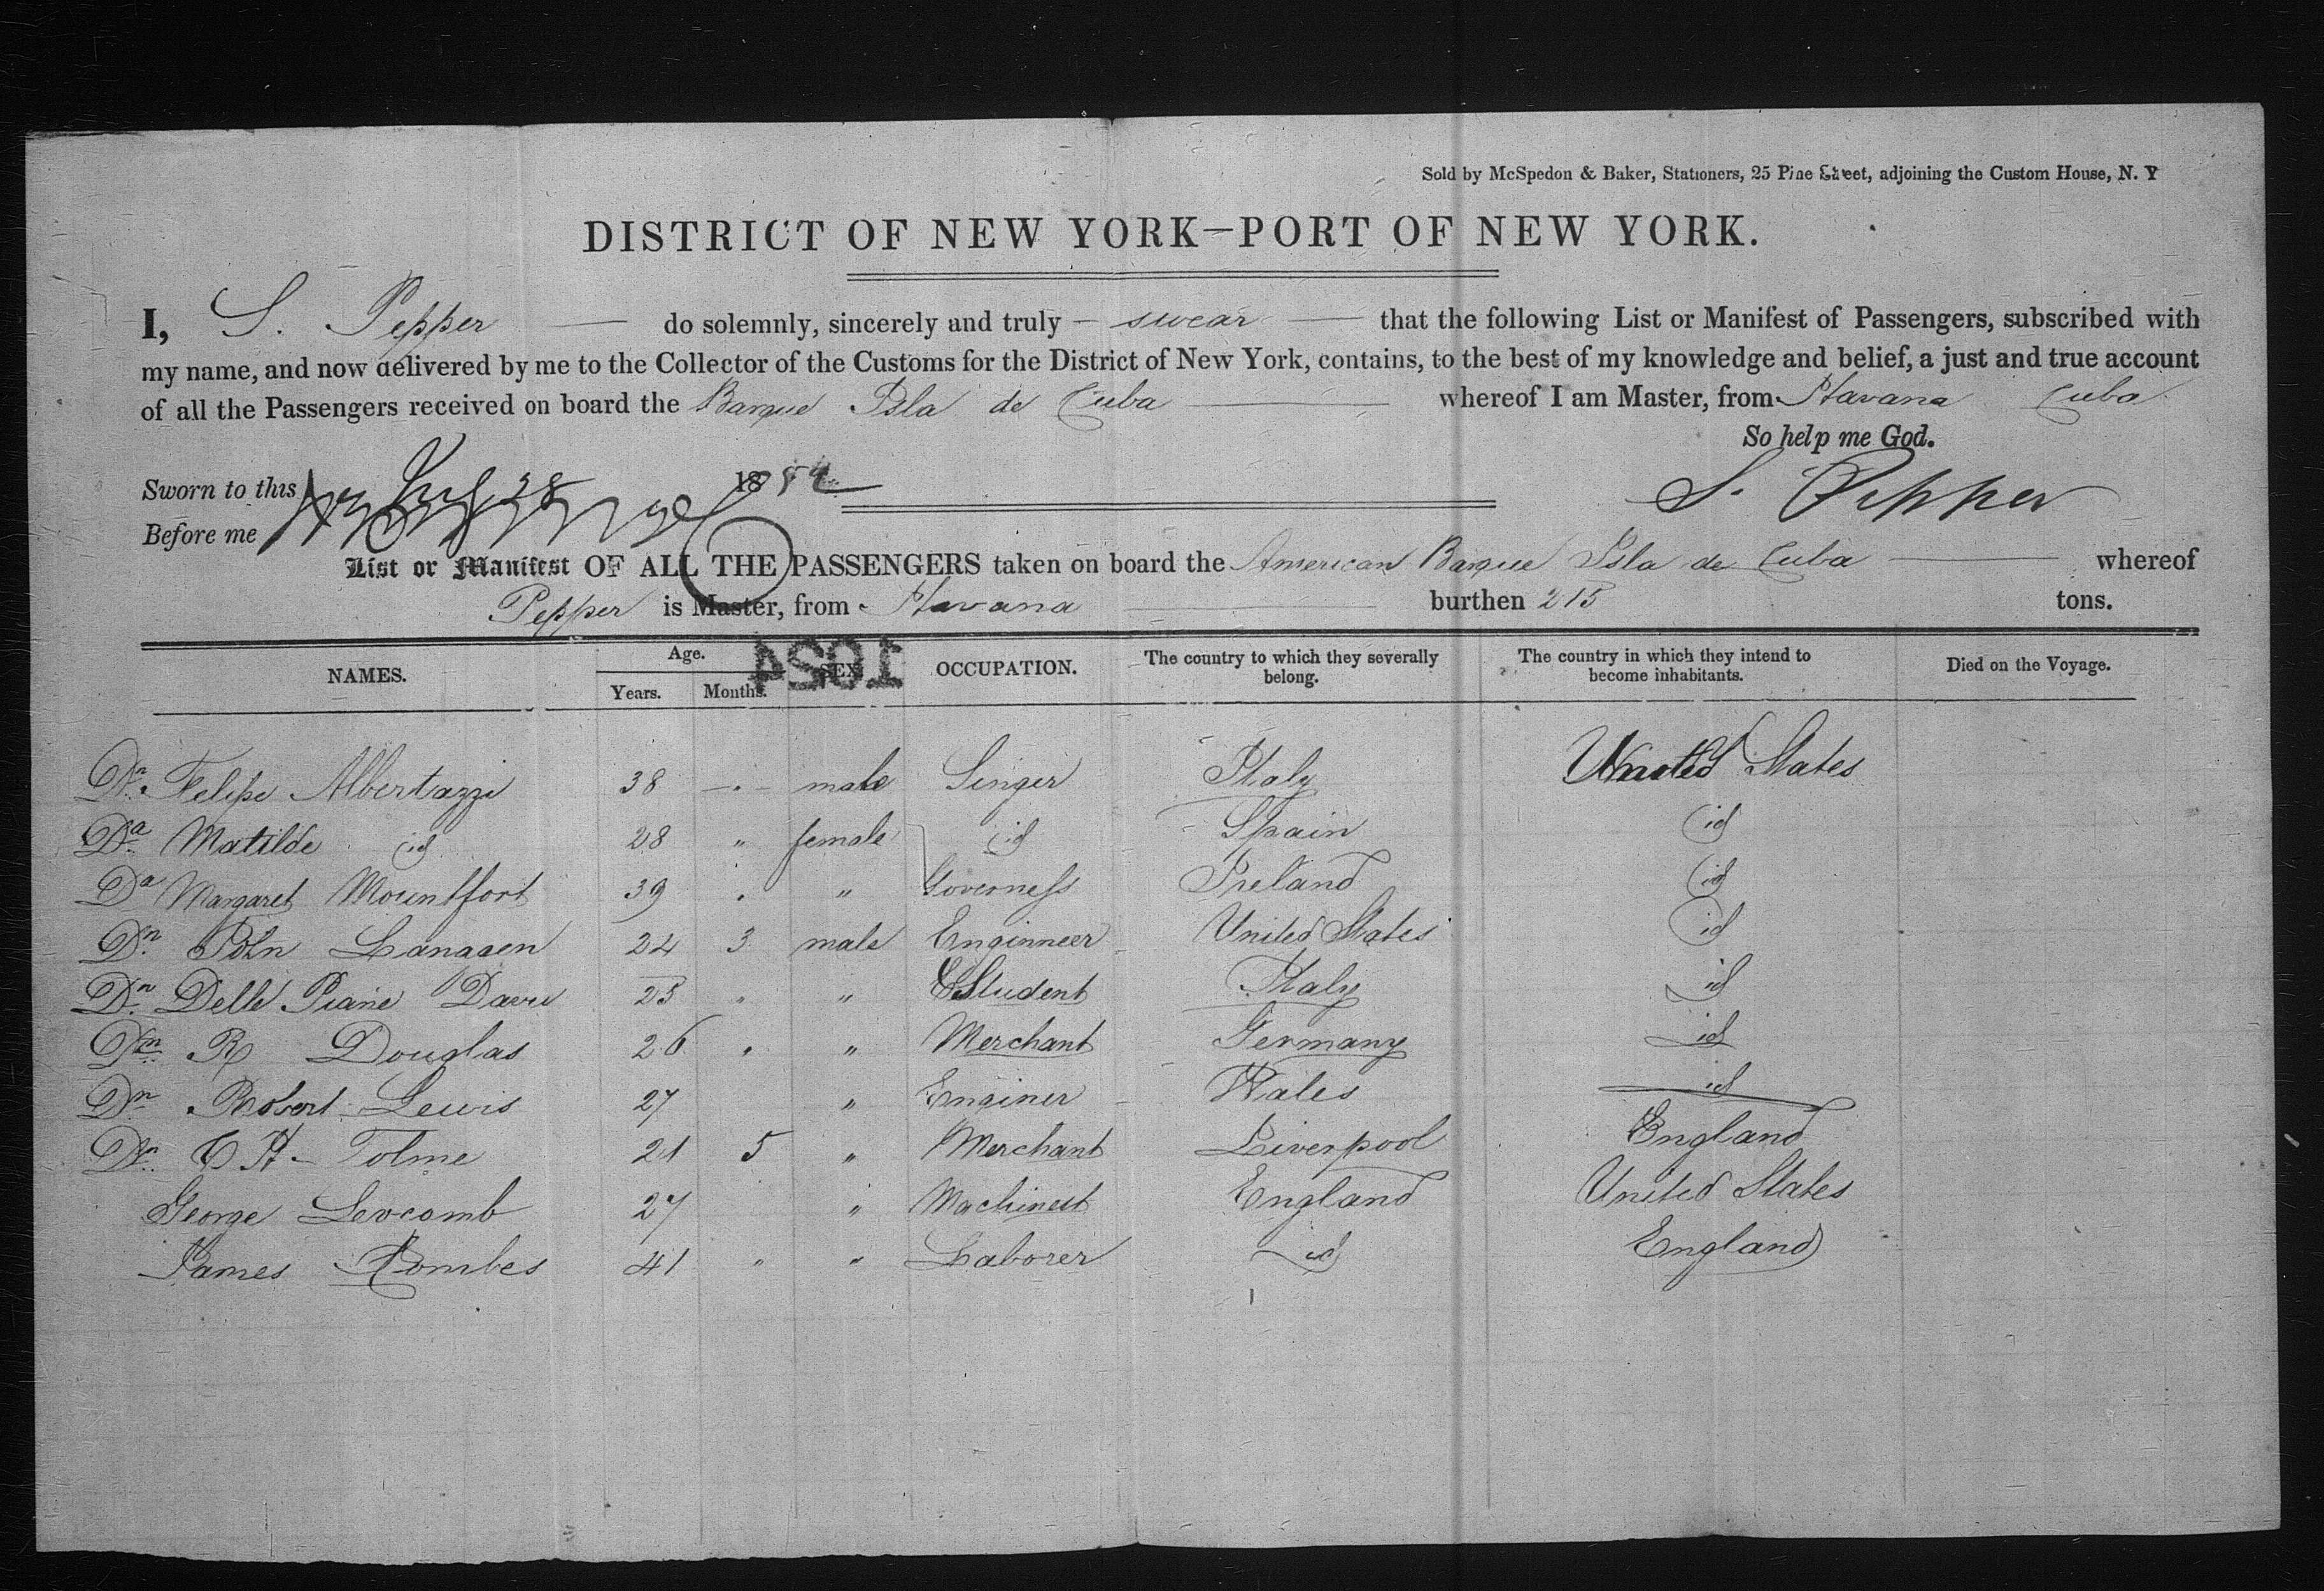 Sold by McSpedon & Baker, Stationers, 25 Pine Street, adjoining the Custom House, N. Y
DISTRICT OF NEW YORK—PORT OF NEW YORK.
I, S. Pepper — do solemnly, sincerely and truly — swear — that the following List or Manifest of Passengers, subscribed with
my name, and now delivered by me to the Collector of the Customs for the District of New York, contains, to the best of my knowledge and belief, a just and true account
of all the Passengers received on board the Barque Isla de Cuba — whereof I am Master, from Havana Cuba
So help me God.
Sworn to this 28 18
S. Pepper
Before me
List or Manifest OF ALL THE PASSENGERS taken on board the American Barque Isla de Cuba — whereof
Pepper is Master, from Havana — burthen 215 tons.
1054
NAMES. Age. Years. Months. SEX OCCUPATION. The country to which they severally belong. The country in which they intend to become inhabitants. Died on the Voyage.
Dn. Felipe Albertazzi 38 - . - male Singer Italy United States
Da. Matilde id 28 " female id Spain id
Da Margaret Mountfort 39 . " Governess Ireland id
Dn. John 24 3 male Enginneer United States id
Dn. Delle Piane 25 " " Student Italy id
Dn. R Douglas 26 . " Merchant Germany id
Dn. Robert Lewis 27 " Enginer Wales id
Dn. C H - Tolme 21 5 " Merchant Liverpool England
George 27 " Machinest England United States
James Combes 41 " " Laborer id England